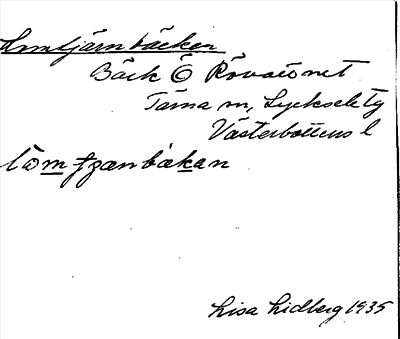 Lomtjärnbäcken
Bäck Ö Rövattnet
Tärna sn, Lycksele tg
Västerbottens l
Lisa Lidberg 1935